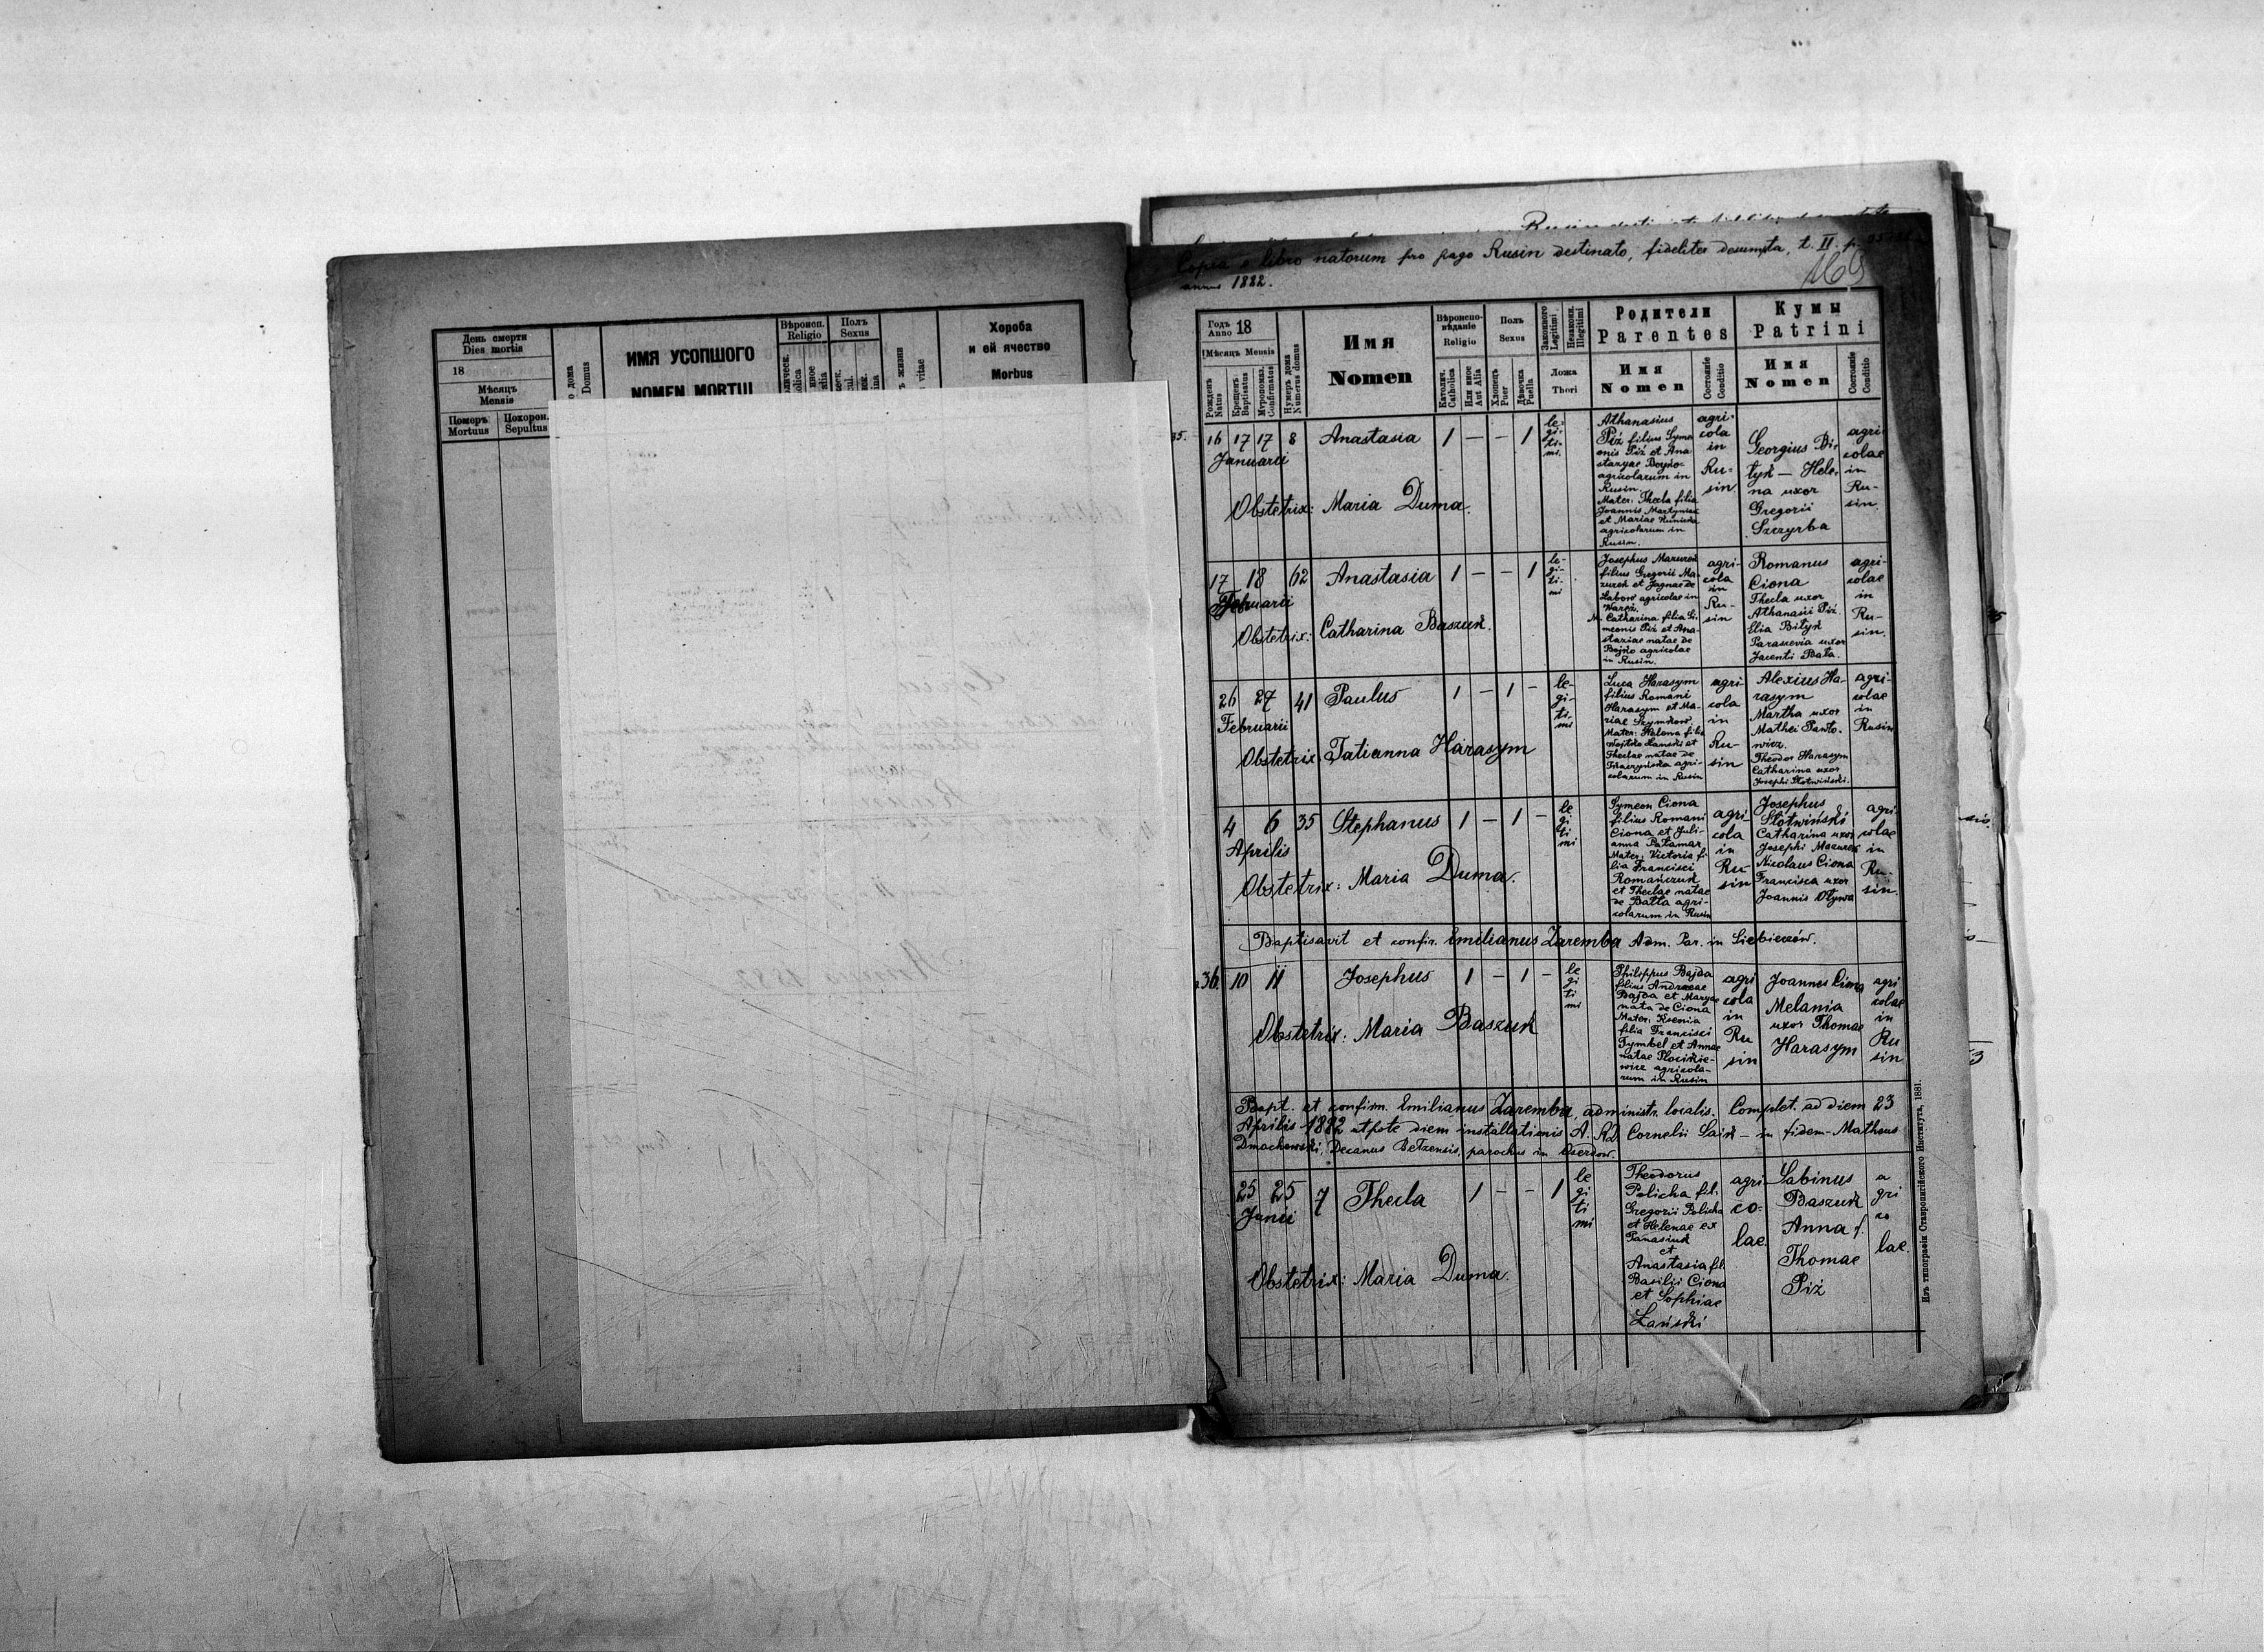 День смерти
Dies mortis
18
Мѣсяцъ
Mensis
Померъ
Mortuus
Похорон.
Sepultus
дома
Domus
ИМЯ УСОПШОГО
NOMEN MORTUI
Вѣроисп.
Religio
Полъ
Sexus
жизни
vitae
Хороба
и ей ячество
Morbus
Copia e libro natorum pro pago Rusin destinato, fideliter desumpta, t. II. p.
annus 1882.
169
Годъ
Anno 18
Мѣсяцъ Mensis
Рожденъ
Natus
Крещенъ
Baptisatus
Мѵропомаз.
Confirmatus
Нумеръ дома
Numerus domus
Имя
Nomen
Вѣроиспо-
вѣданіе
Religio
Католич.
Catholica
Или иное
Aut Alia
Полъ
Sexus
Хлопецъ
Puer
Дѣвочка
Puella
Законного
Legitimi
Незаконн.
Illegitimi
Ложа
Thori
Родители
Parentes
Имя
Nomen
Состояніе
Conditio
Кумы
Patrini
Имя
Nomen
Состояніе
Conditio
35.
16 17 17 8 Anastasia 1 – – 1
Januarii
le-
gi-
ti-
mi.
Athanasius
Piż filius Syme
onis Piż et Ana
stazyae Boyko
agricolarum in
Rusin.
Mater: Thecla filia
Joannis Martyniak
et Mariae
agricolarum in
Rusin.
agri-
cola
in
Ru-
sin
Georgius Bi-
tyk – Hele-
na uxor
Gregorii
Szczyrba
agri
colae
in
Ru-
sin.
Obstetrix: Maria Duma.
17 18 62 Anastasia 1 – – 1
Februarii
le-
gi-
ti-
mi
Josephus Mazurek
filius Gregorii Ma-
zurek et Jagnae de
agricolae in
Waręż.
M. Catharina filia Si-
meonis Piż et Ana-
staziae natae de
Bojko agricolae
in Rusin.
agri-
cola
in
Ru-
sin
Romanus
Ciona
Thecla uxor
Athanasii Piż.
Elia Bityk
Parascevia uxor
Jacenti Bata.
agri-
colae
in
Ru-
sin.
Obstetrix: Catharina Baszuk.
26 27 41 Paulus 1 – 1 –
Februarii
le-
gi-
ti-
mi
Luca Harasym
filius Romani
Harasym et Ma-
riae Szymkow.
Mater: Helena filia
Wojtko Łanski et
Theclae natae de
agri-
colarum in Rusin
agri-
cola
in
Ru-
sin
Alexius Ha-
rasym
Martha uxor
Mathei Pawło-
wicz.
Theodor Harasym
Catharina uxor
Josephi Słotwiński.
agri-
colae
in
Rusin
Obstetrix: Tatianna Harasym
4 6 35 Stephanus 1 – 1 –
Aprilis
le
gi
ti
mi
Symeon Ciona
filius Romani
Ciona et Juli-
anna Pałamar
Mater: Victoria fi-
lia Francisci
Romańczuk
et Theclae natae
de Batta agri-
colarum in Rusin
agri-
cola
in
Ru-
sin
Josephus
Słotwiński
Catharina uxor
Josephi Mazurek
Nicolaus Ciona
Francisca uxor
Joannis Otywa
agri
colae
in
Ru-
sin.
Obstetrix: Maria Duma.
Baptisavit et confir. Emilianus Zaremba Adm. Par. in Liebieczów.
36. 10 11 Josephus 1 – 1 –
le
gi
ti
mi
Philippus Bajda
filius Andreae
Bajda et Maryae
nata de Ciona
Mater: Ksenia
filia Francisci
Tymbel et Annae
natae Płocikie-
wicz agricola-
rum in Rusin
agri
cola
in
Ru
sin
Joannes Ciona
Melania
uxor Thomae
Harasym
agri
colae
in
Ru
sin
Obstetrix: Maria Baszuk
Bapt. et confirm. Emilianus Zaremba, administr. localis. Complet. ad diem 23
Aprilis 1882 utpote diem installationis A. RD. Cornelii Saik – in fidem – Matheus
Dmochowski, Decanus Bełzensis, parochus in Oserdow.
25 25 7 Thecla 1 – – 1
Junii
le
gi
ti
mi
Theodorus
Policha fil.
Gregorii Policha
et Helenae ex
Panasiuk
et
Anastasia fil.
Basilii Ciona
et Sophiae
Łański
agri
co-
lae.
Sabinus
Baszuk
Anna f.
Thomae
Piż
a
gri
co
lae.
Obstetrix: Maria Duma.
Изъ типографіи Ставропигійского Института, 1881.